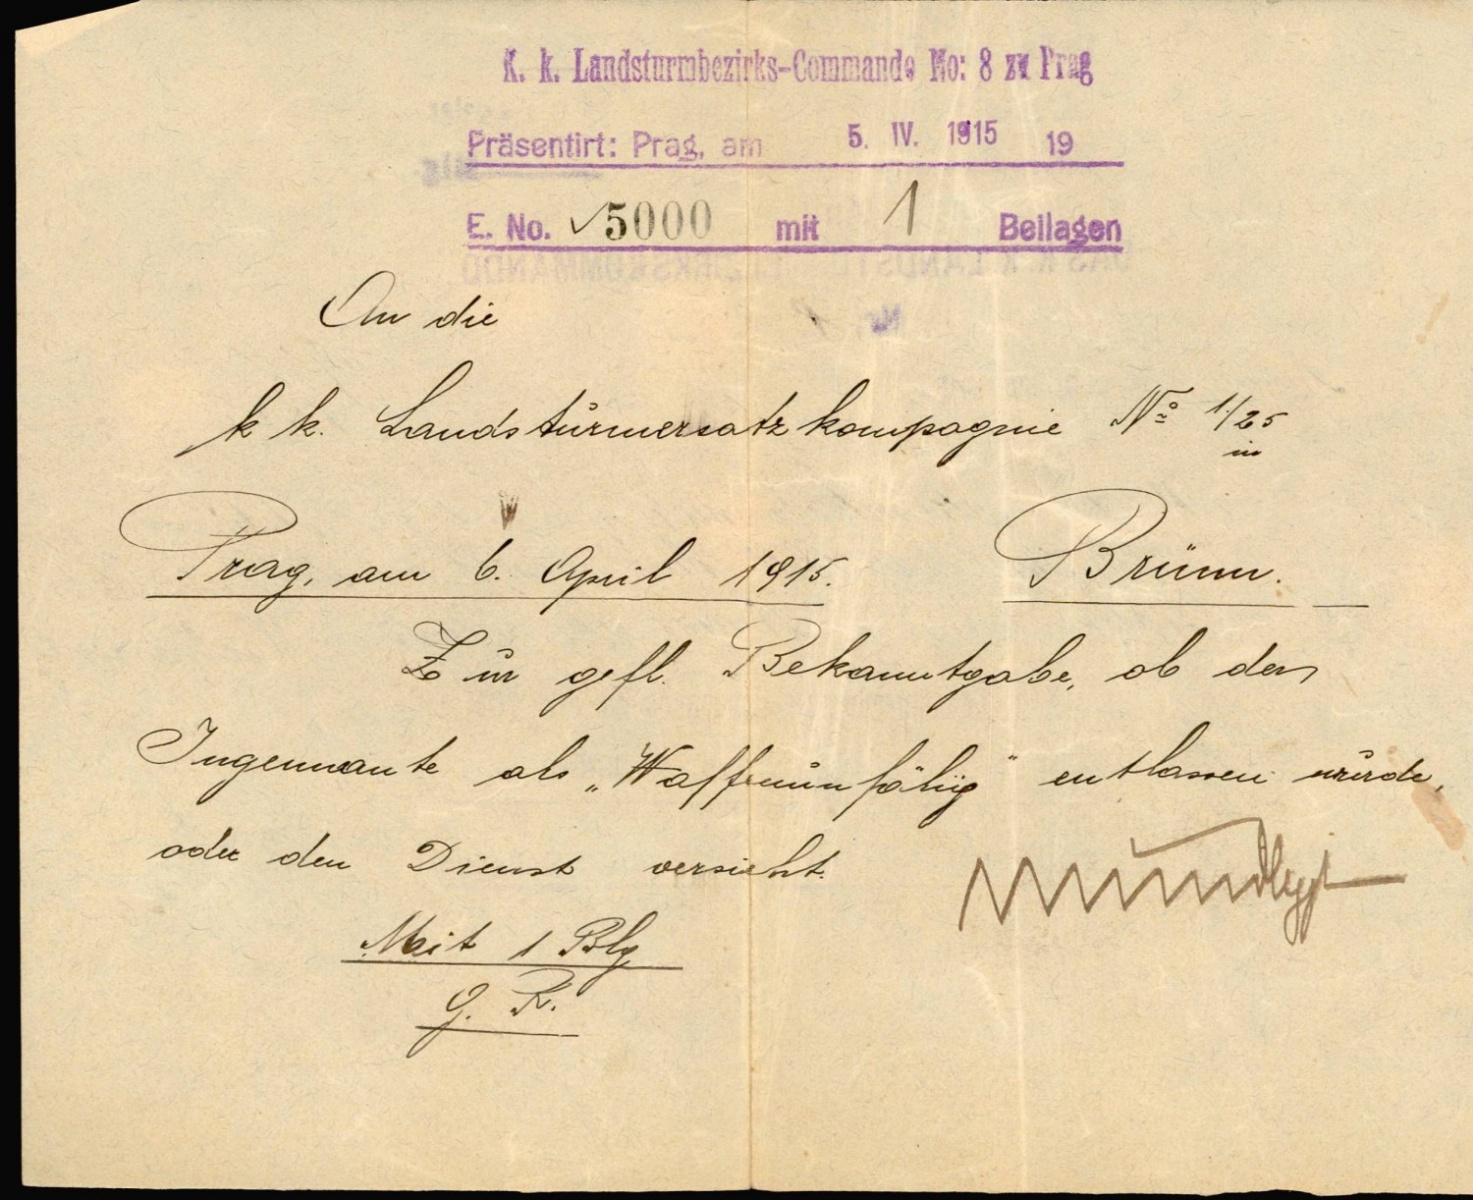 K. k. Landsturmbezirks-Commando No: 8 zu Prag
Präsentirt: Prag, am 5. IV. 1915 19
E. No. 5000 mit 1 Beilagen
An die
k k. Landsturmersatzkompagnie No 1/25
in
Prag, am 6. April 1915. Brünn.
Zur gefl. Bekanntgabe, ob der
Ingenannte als „Waffenunfähig" entlassen wurde,
oder den Dienst versieht.
Mit 1 Blg
G. R.